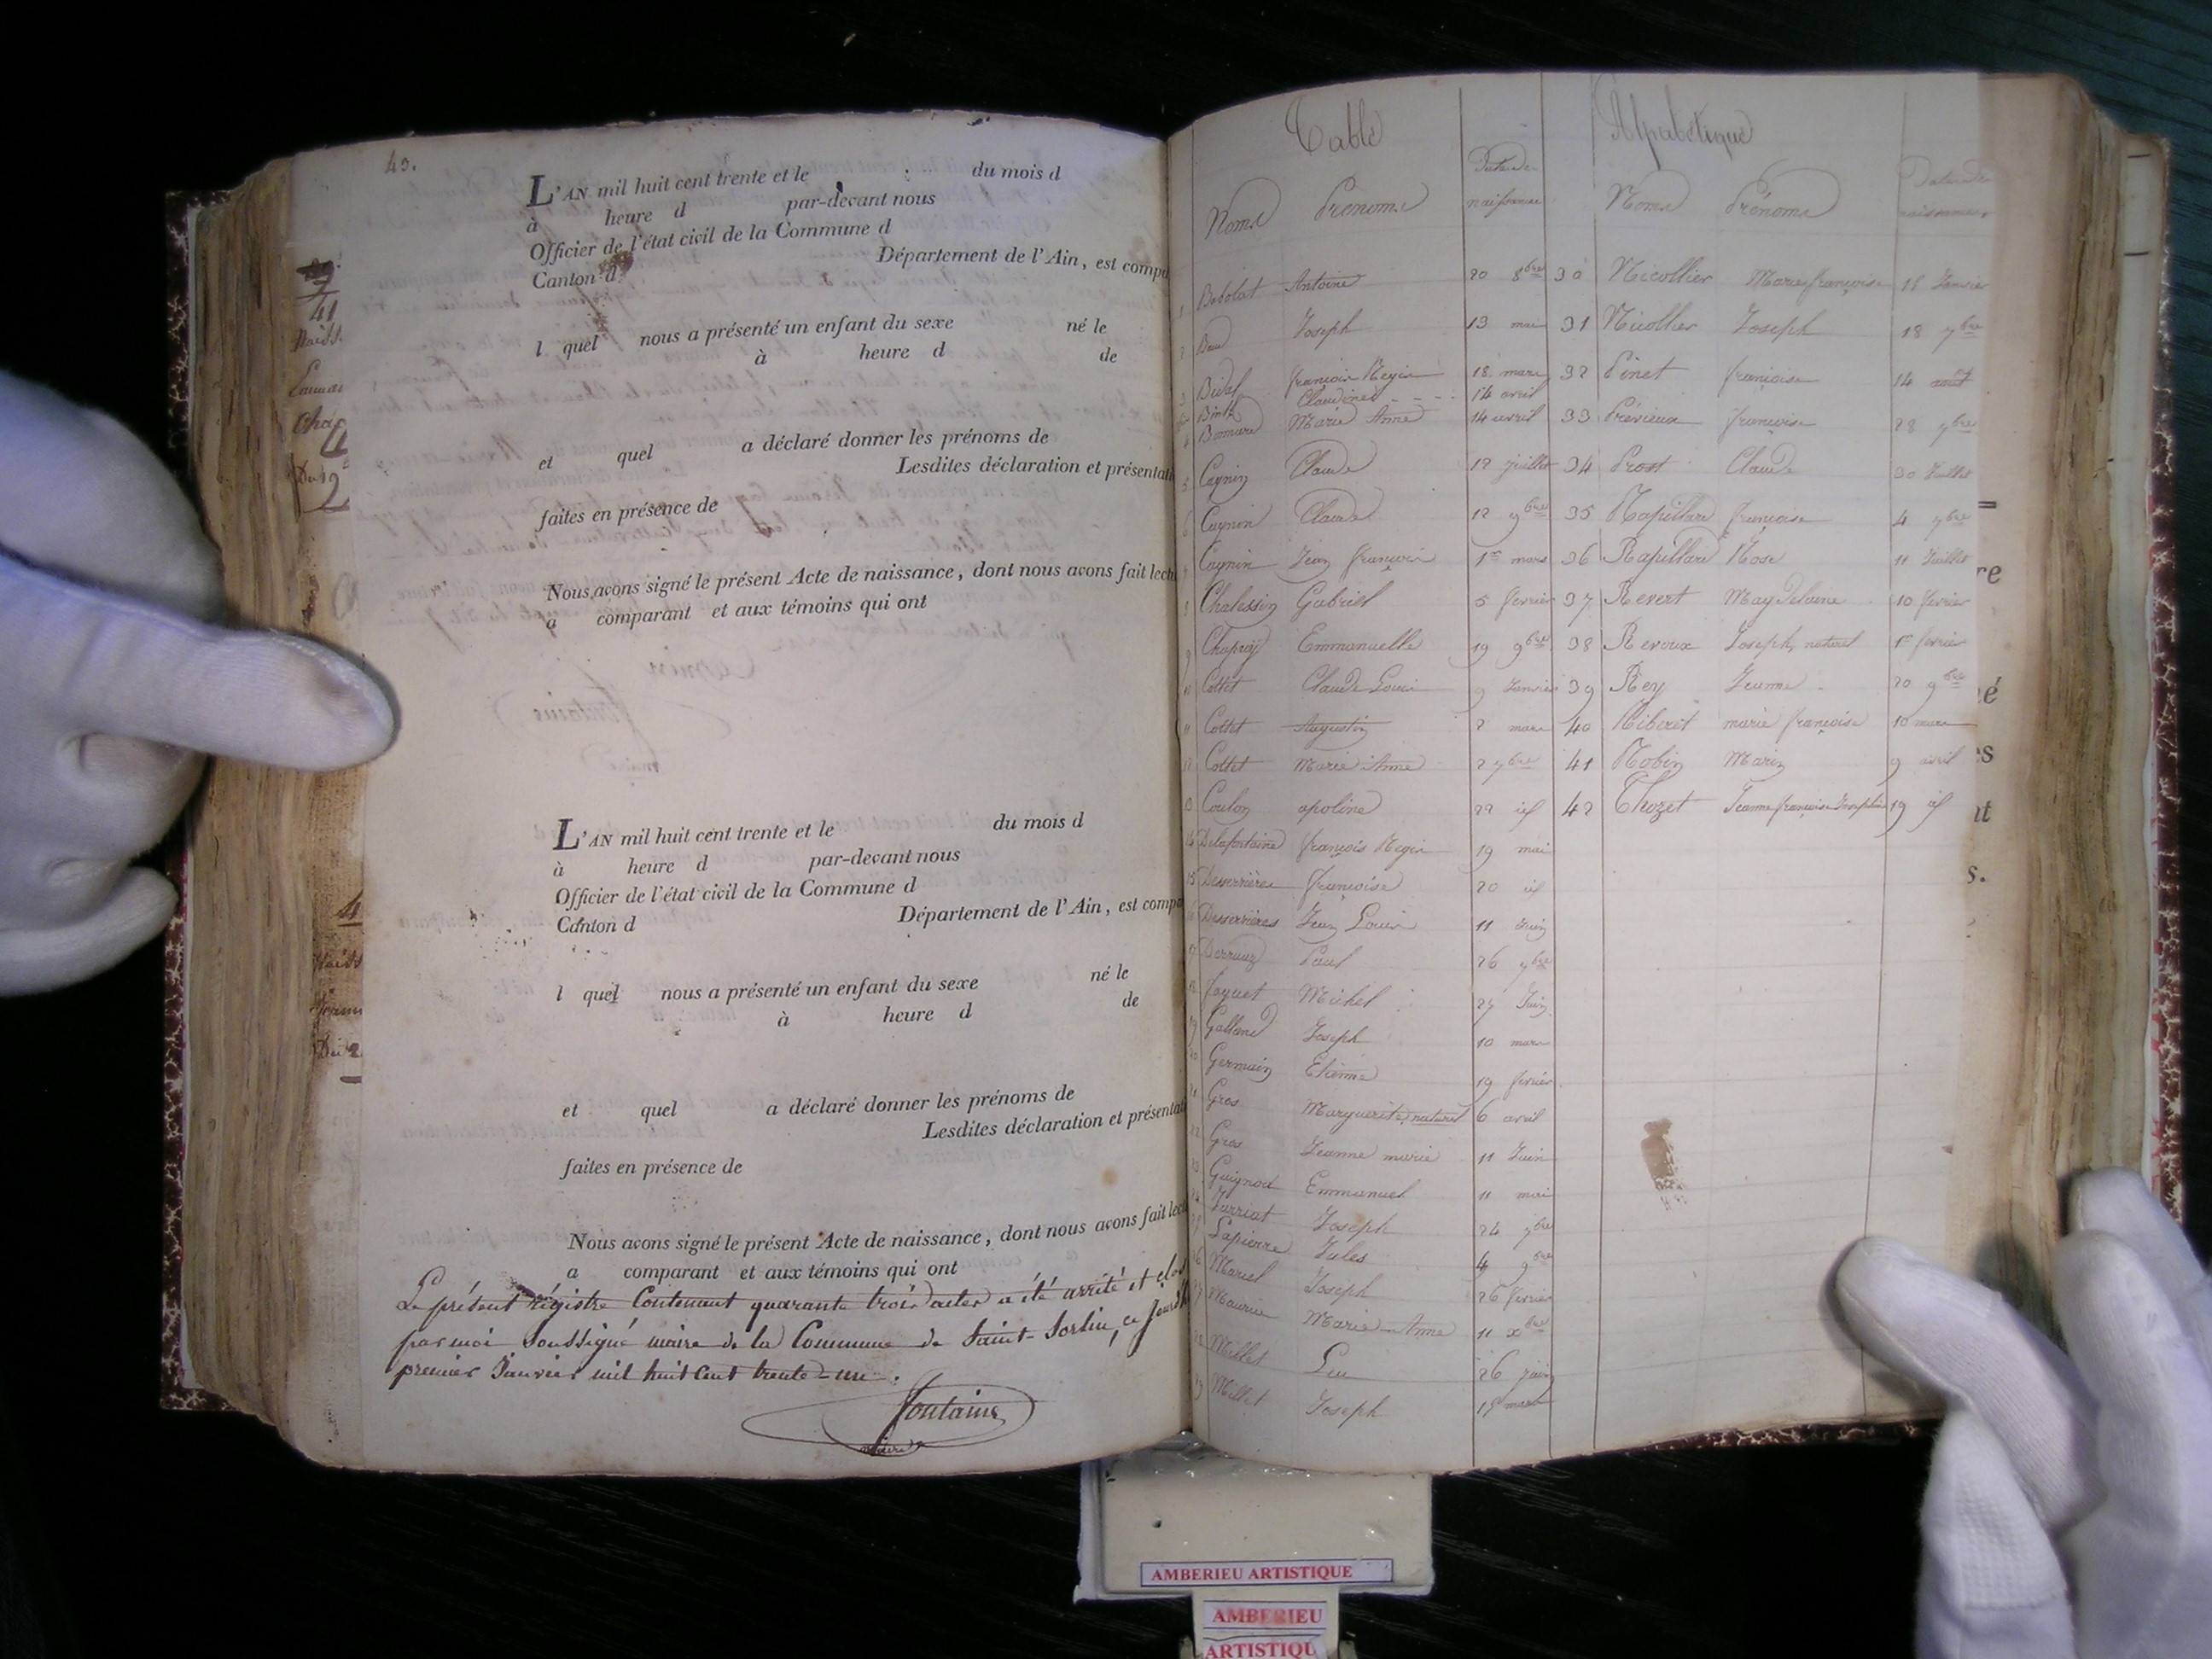 43.
L'AN mil huit cent trente et le du mois d
à heure d par-devant nous
Officier de l'état civil de la Commune d
Canton d Département de l'Ain, est compa
l quel nous a présenté un enfant du sexe né le
à heure d de
et quel a déclaré donner les prénoms de
Lesdites déclaration et présentati
faites en présence de
Nous avons signé le présent Acte de naissance, dont nous avons fait lect
a comparant et aux témoins qui ont
L'AN mil huit cent trente et le du mois d
à heure d par-devant nous
Officier de l'état civil de la Commune d
Canton d Département de l'Ain, est compa
l quel nous a présenté un enfant du sexe né le
à heure d de
et quel a déclaré donner les prénoms de
Lesdites déclaration et présentat
faites en présence de
Nous avons signé le présent Acte de naissance, dont nous avons fait lec
a comparant et aux témoins qui ont
Le présent régistre Contenant quarante trois actes a été arrêté et clos
par moi Soussigné maire de la Commune de Saint-Sorlin, ce jourd'h
premier Janvier mil huit cent trente-un.
fontaine
maire
Table Alpabétique
Noms Prénoms Date de naissance Noms Prénoms Date de naissance
1 Bobolat Antoine 20 8bre
2 Baud Joseph 13 mai
3 Bidal françois Regis 18 mars
Claudine 14 avril
4 Bonnard Marie Anne 14 avril
5 Cagnin Claude 12 juillet
6 Cugnin Claude 12 9bre
7 Cugnin Jean françois 1er mars
8 Chalessin Gabriel 5 fevrier
9 Chapuy Emmanuelle 19 9bre
10 Cottet Claude Louis 9 Janvier
11 Cottet Augustin 2 mars
12 Cottet Marie Anne 2 7bre
13 Coulon apoline 22 id
14 Delafontaine françois Regis 19 mai
15 Desserrières françoise 20 id
16 Desserrières Jean Louis 11 Juin
17 Derruaz Paul 26 7bre
18 fayuet Michel 27 Juin
19 Galland Joseph 10 mars
20 Germain Etienne 19 fevrier
21 Gros Marguerite, naturel 6 avril
22 Gros Jeanne marie 11 Juin
23 Guignod Emmanuel 11 mai
24 Jarriat Joseph 24 7bre
25 Lapierre Jules 4 9bre
26 Marcel Joseph 26 fevrier
27 Maurice Marie-Anne 11 xbre
28 Millet Luc 26 juin
29 Millet Joseph 15 mars
30 Nicollier Marie françoise 18 Janvier
31 Nicollier Joseph 18 7bre
32 Pinet françoise 14 aout
33 Prévieux françoise 28 7bre
34 Prost Claude 30 Juillet
35 Rapillard françoise 4 7bre
36 Rapillard Rose 11 Juillet
37 Revert Magdelaine 10 fevrier
38 Revoux Joseph, naturel 1er fevrier
39 Rey Jeanne 20 9bre
40 Riberet marie françoise 10 mars
41 Robin Marin 9 avril
42 Thozet Jeanne françoise Josephte 19 id
AMBERIEU ARTISTIQUE
AMBERIEU
ARTISTIQU